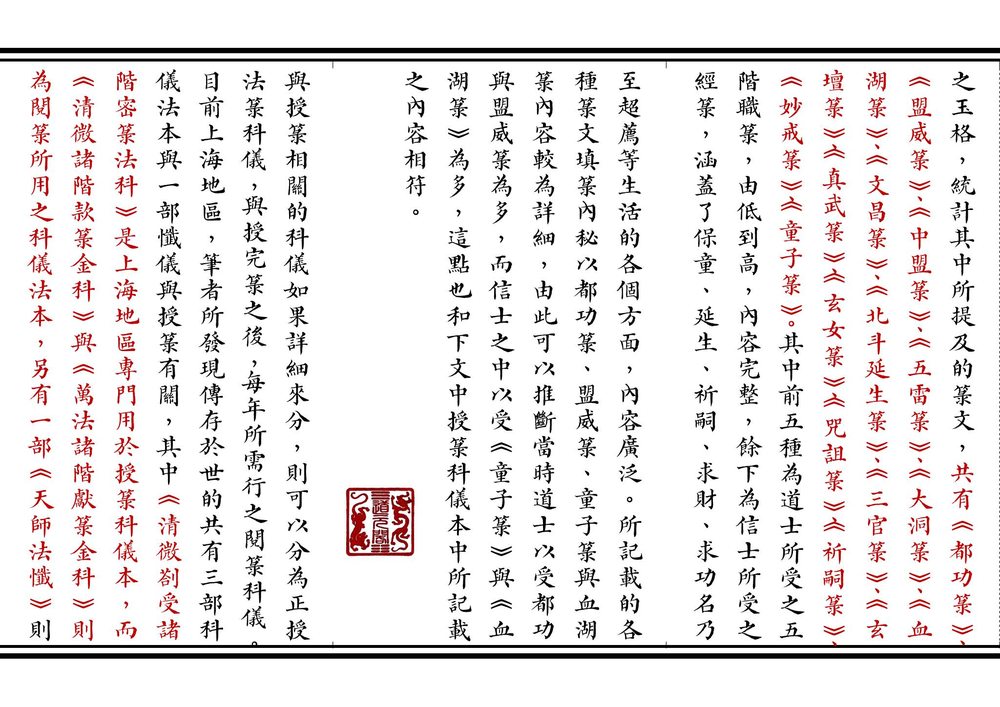 之玉格，統計其中所提及的箓文，共有《都功箓》、
《盟威箓》、《中盟箓》、《五雷箓》、《大洞箓》、《血
湖箓》、《文昌箓》、《北斗延生箓》、《三官箓》、《玄
壇箓》《真武箓》《玄女箓》《咒詛箓》《祈嗣箓》、
《妙戒箓》《童子箓》。其中前五種為道士所受之五
階職箓，由低到高，內容完整，餘下為信士所受之
經箓，涵蓋了保童、延生、祈嗣、求財、求功名乃
至超薦等生活的各個方面，內容廣泛。所記載的各
種箓文填箓內秘以都功箓、盟威箓、童子箓與血湖
箓內容較為詳細，由此可以推斷當時道士以受都功
與盟威箓為多，而信士之中以受《童子箓》與《血
湖箓》為多，這點也和下文中授箓科儀本中所記載
之內容相符。
與授箓相關的科儀如果詳細來分，則可以分為正授
法箓科儀，與授完箓之後，每年所需行之閱箓科儀。
目前上海地區，筆者所發現傳存於世的共有三部科
儀法本與一部懺儀與授箓有關，其中《清微剳受諸
階密箓法科》是上海地區專門用於授箓科儀本，而
《清微諸階款箓金科》與《萬法諸階獻箓金科》則
為閱箓所用之科儀法本，另有一部《天師法懺》則